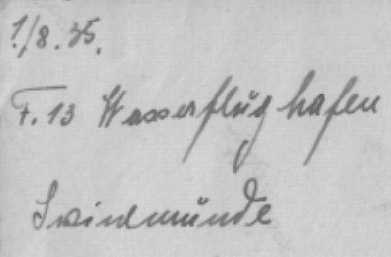 1./8.35.
F.13 Wasserflughafen
Swinemünde